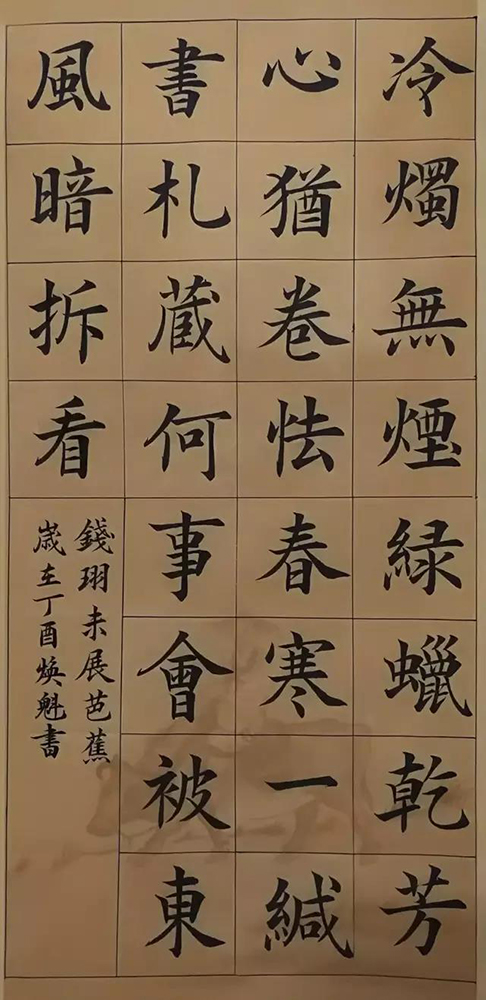 冷燭無煙緑蠟乾芳
心猶卷怯春寒一緘
書札蔵何事會被東
風暗拆看
錢珝未展芭蕉
歲在丁酉煥魁書